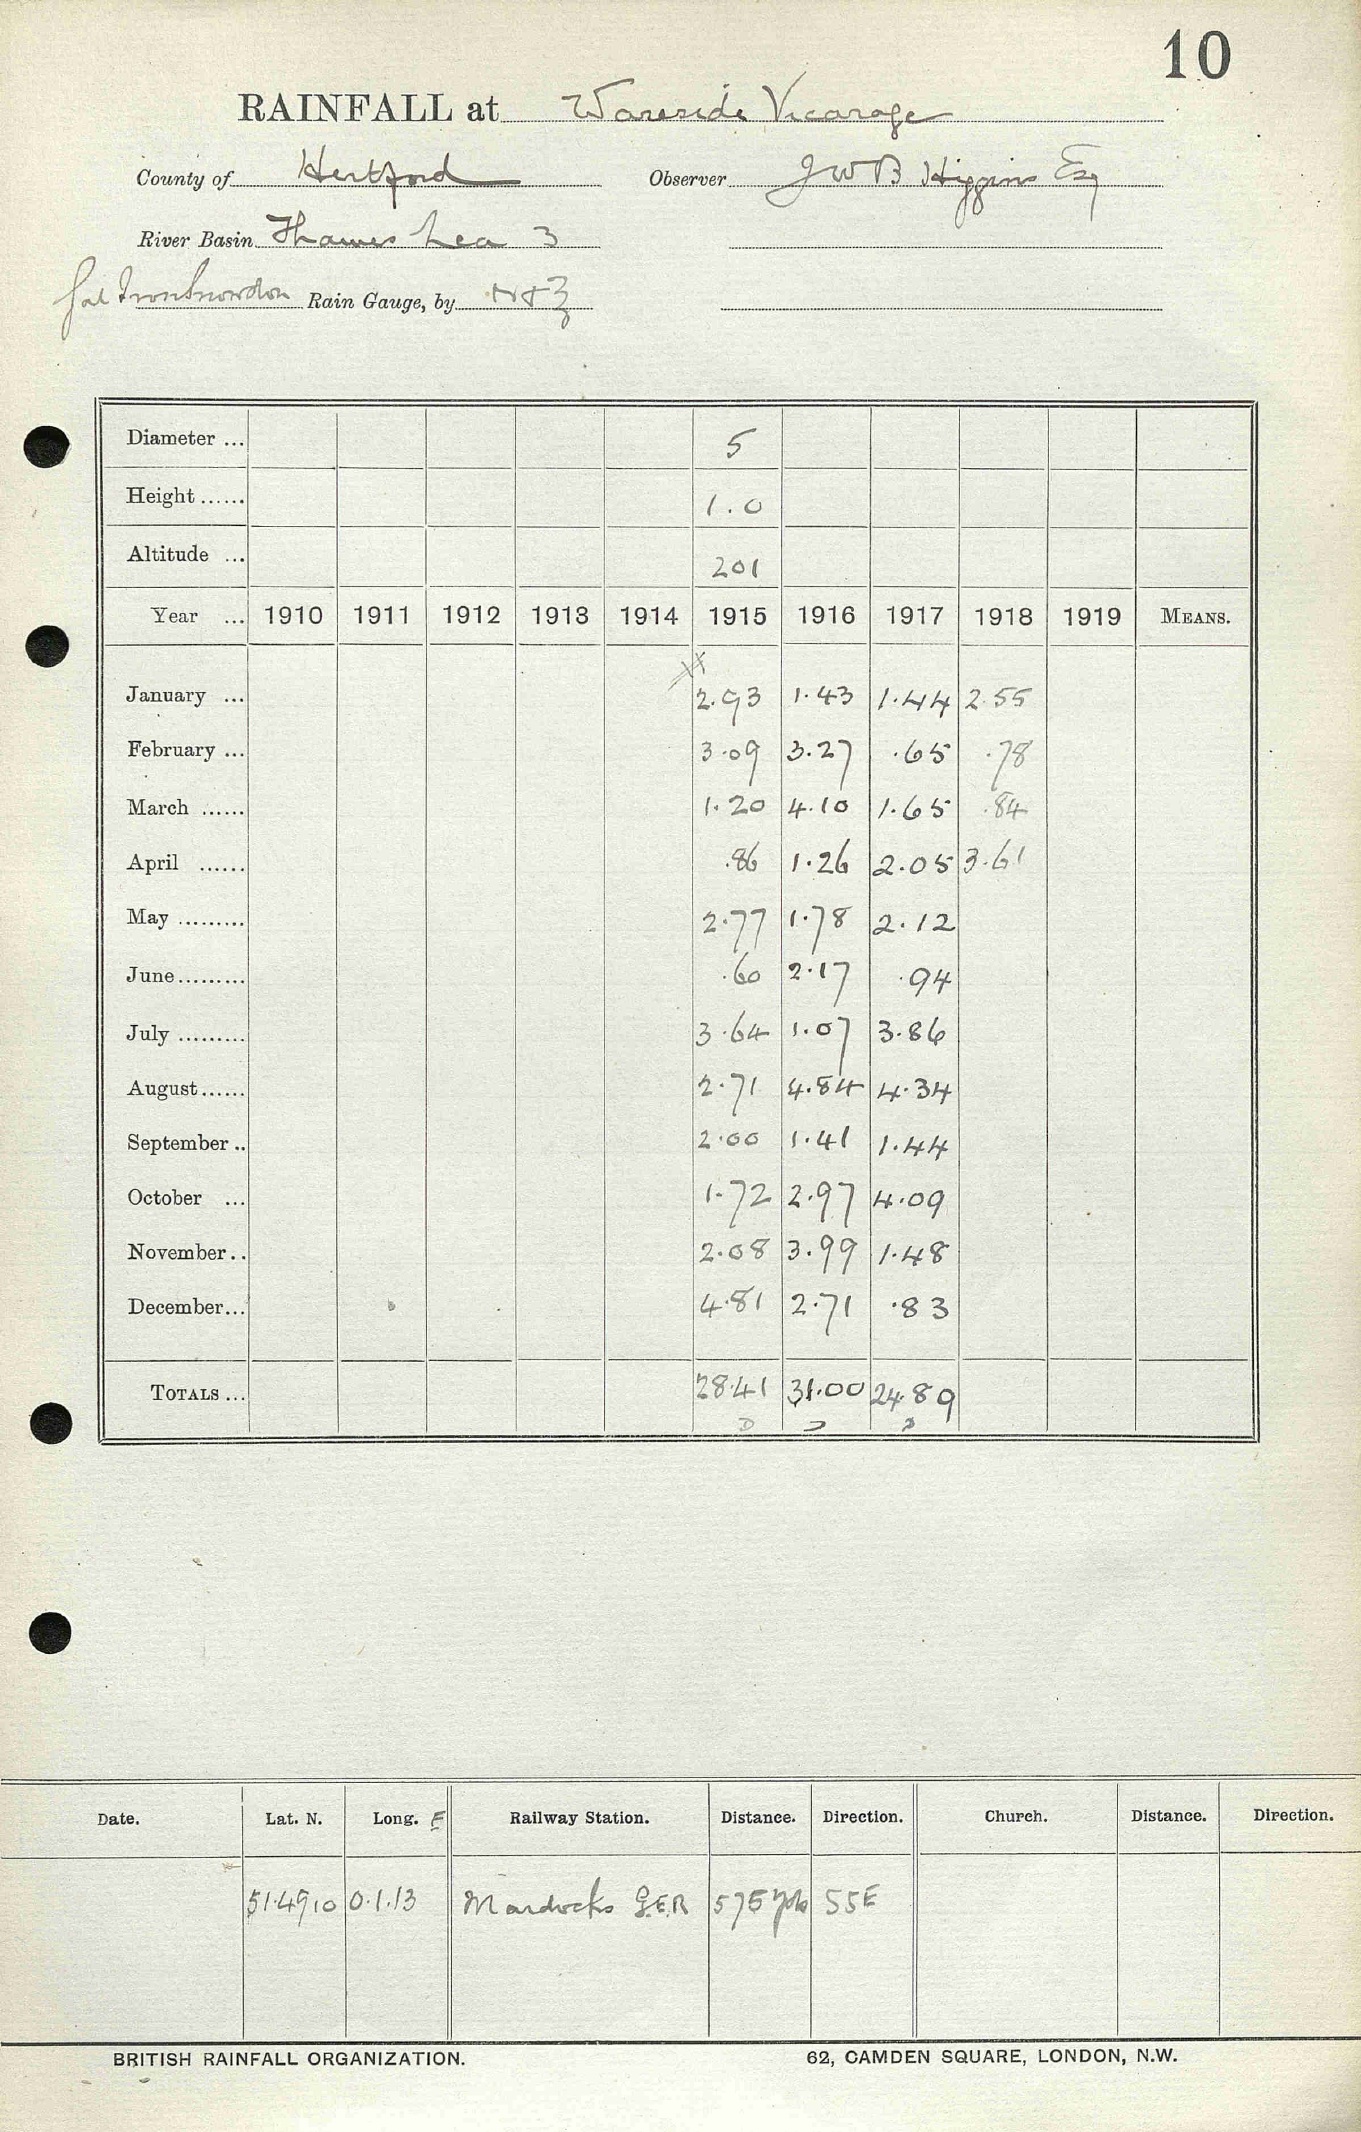 10
RAINFALL at Wareside Vicarage
County of Hertford Observer J W B Higgins Esq
River Basin Thames Lea 3
Gal Iron Snowdon Rain Gauge, by N&Z
Diameter ... 5
Height ...... 1.0
Altitude ... 201
Year ... 1910 1911 1912 1913 1914 1915 1916 1917 1918 1919 MEANS.
January ... 2.93 1.43 1.44 2.55
February ... 3.09 3.27 .65 .78
March ...... 1.20 4.10 1.65 .84
April ...... .86 1.26 2.05 3.61
May ......... 2.77 1.78 2.12
June ......... .60 2.17 .94
July ......... 3.64 1.07 3.86
August ...... 2.71 4.84 4.34
September .. 2.00 1.41 1.44
October ... 1.72 2.97 4.09
November .. 2.08 3.99 1.48
December ... 4.81 2.71 .83
TOTALS ... 28.41 31.00 24.89
Date. Lat. N. Long. E Railway Station. Distance. Direction. Church. Distance. Direction.
51.49.10 0.1.13 Mardocks G.E.R 575 yds SSE
BRITISH RAINFALL ORGANIZATION. 62, CAMDEN SQUARE, LONDON, N.W.